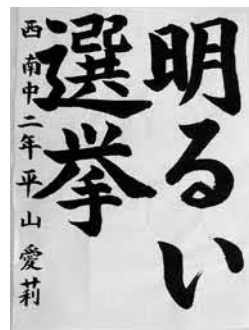 明るい
選挙
西南中二年平山愛莉